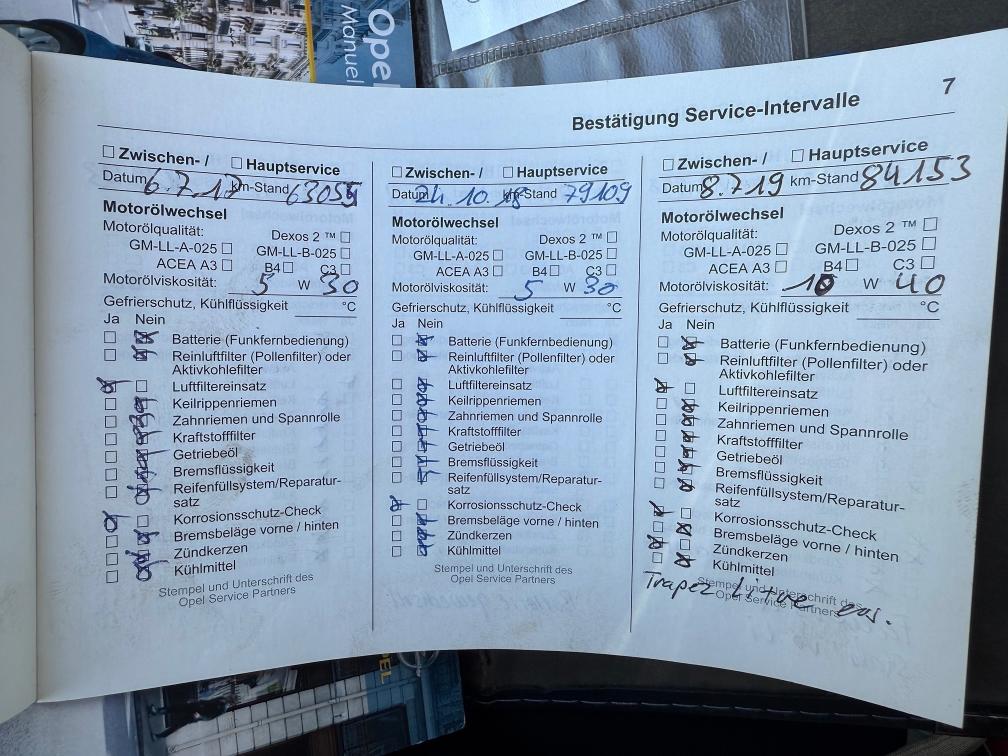 Opel
Manuel
Bestätigung Service-Intervalle
7
Zwischen- / Hauptservice
Datum 6.7.17 km-Stand 63055
Motorölwechsel
Motorölqualität: Dexos 2 ™
GM-LL-A-025 GM-LL-B-025
ACEA A3 B4 C3
Motorölviskosität: 5 W 30
Gefrierschutz, Kühlflüssigkeit °C
Ja Nein
Batterie (Funkfernbedienung)
Reinluftfilter (Pollenfilter) oder
Aktivkohlefilter
Luftfiltereinsatz
Keilrippenriemen
Zahnriemen und Spannrolle
Kraftstofffilter
Getriebeöl
Bremsflüssigkeit
Reifenfüllsystem/Reparatur-
satz
Korrosionsschutz-Check
Bremsbeläge vorne / hinten
Zündkerzen
Kühlmittel
Stempel und Unterschrift des
Opel Service Partners
Zwischen- / Hauptservice
Datum 24.10.18 km-Stand 79109
Motorölwechsel
Motorölqualität: Dexos 2 ™
GM-LL-A-025 GM-LL-B-025
ACEA A3 B4 C3
Motorölviskosität: 5 W 30
Gefrierschutz, Kühlflüssigkeit °C
Ja Nein
Batterie (Funkfernbedienung)
Reinluftfilter (Pollenfilter) oder
Aktivkohlefilter
Luftfiltereinsatz
Keilrippenriemen
Zahnriemen und Spannrolle
Kraftstofffilter
Getriebeöl
Bremsflüssigkeit
Reifenfüllsystem/Reparatur-
satz
Korrosionsschutz-Check
Bremsbeläge vorne / hinten
Zündkerzen
Kühlmittel
Stempel und Unterschrift des
Opel Service Partners
Zwischen- / Hauptservice
Datum 8.7.19 km-Stand 84153
Motorölwechsel
Motorölqualität: Dexos 2 ™
GM-LL-A-025 GM-LL-B-025
ACEA A3 B4 C3
Motorölviskosität: 10 W 40
Gefrierschutz, Kühlflüssigkeit °C
Ja Nein
Batterie (Funkfernbedienung)
Reinluftfilter (Pollenfilter) oder
Aktivkohlefilter
Luftfiltereinsatz
Keilrippenriemen
Zahnriemen und Spannrolle
Kraftstofffilter
Getriebeöl
Bremsflüssigkeit
Reifenfüllsystem/Reparatur-
satz
Korrosionsschutz-Check
Bremsbeläge vorne / hinten
Zündkerzen
Kühlmittel
Stempel und Unterschrift des
Opel Service Partners
Trapez